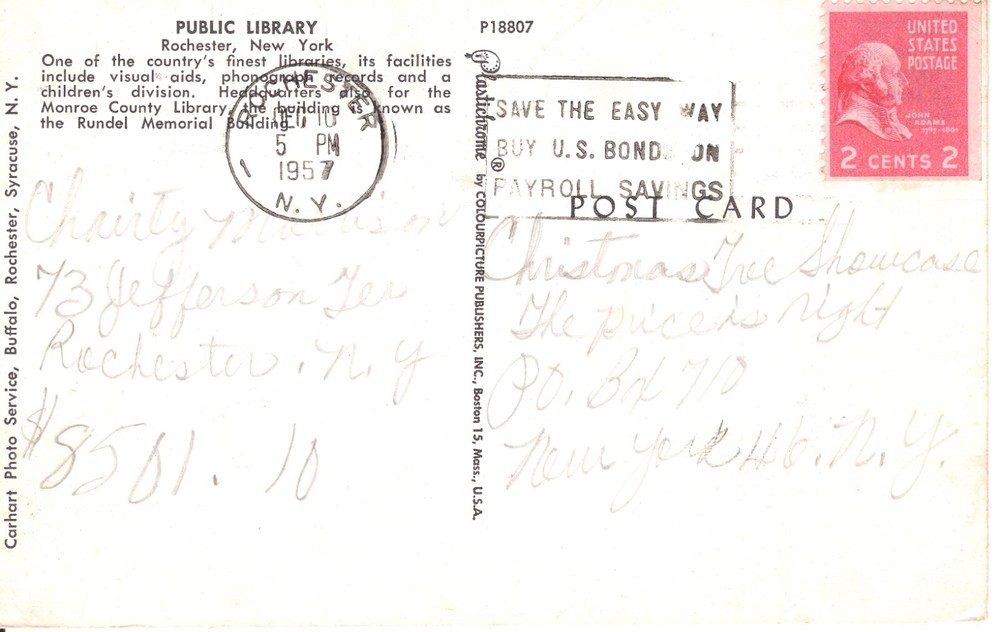 PUBLIC LIBRARY
Rochester, New York
One of the country's finest libraries, its facilities
include visual aids, phonograph records and a
children's division. Headquarters also for the
Monroe County Library, the building is known as
the Rundel Memorial Building.
P18807
ROCHESTER
DEC 10
5 PM
1957
N. Y.
1
SAVE THE EASY WAY
BUY U.S. BONDS ON
PAYROLL SAVINGS
UNITED
STATES
POSTAGE
JOHN
ADAMS
1797-1801
2 CENTS 2
POST CARD
Chairty Morrison
73 Jefferson Ter
Rochester. N. Y
$8501. 10
Christmas Tree Showcase
The price is right
PO. Box 710
New York 46. N. Y.
Plastichrome ® by COLOURPICTURE PUBLISHERS, INC., Boston 15, Mass., U.S.A.
Carhart Photo Service, Buffalo, Rochester, Syracuse, N. Y.